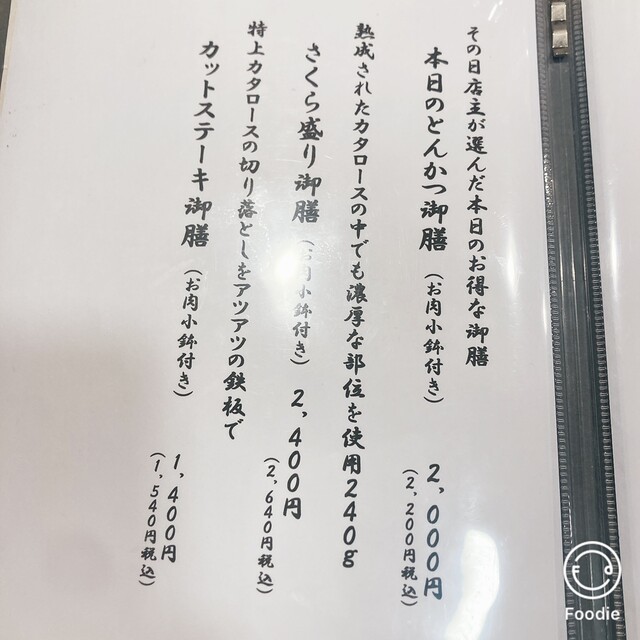 その日店主が選んだ本日のお得な御膳
本日のとんかつ御膳（お肉小鉢付き）2,000円
（2,200円税込）
熟成されたカタロースの中でも濃厚な部位を使用240g
さくら盛り御膳（お肉小鉢付き）2,400円
（2,640円税込）
特上カタロースの切り落としをアツアツの鉄板で
カットステーキ御膳（お肉小鉢付き）1,400円
（1,540円税込）
Foodie